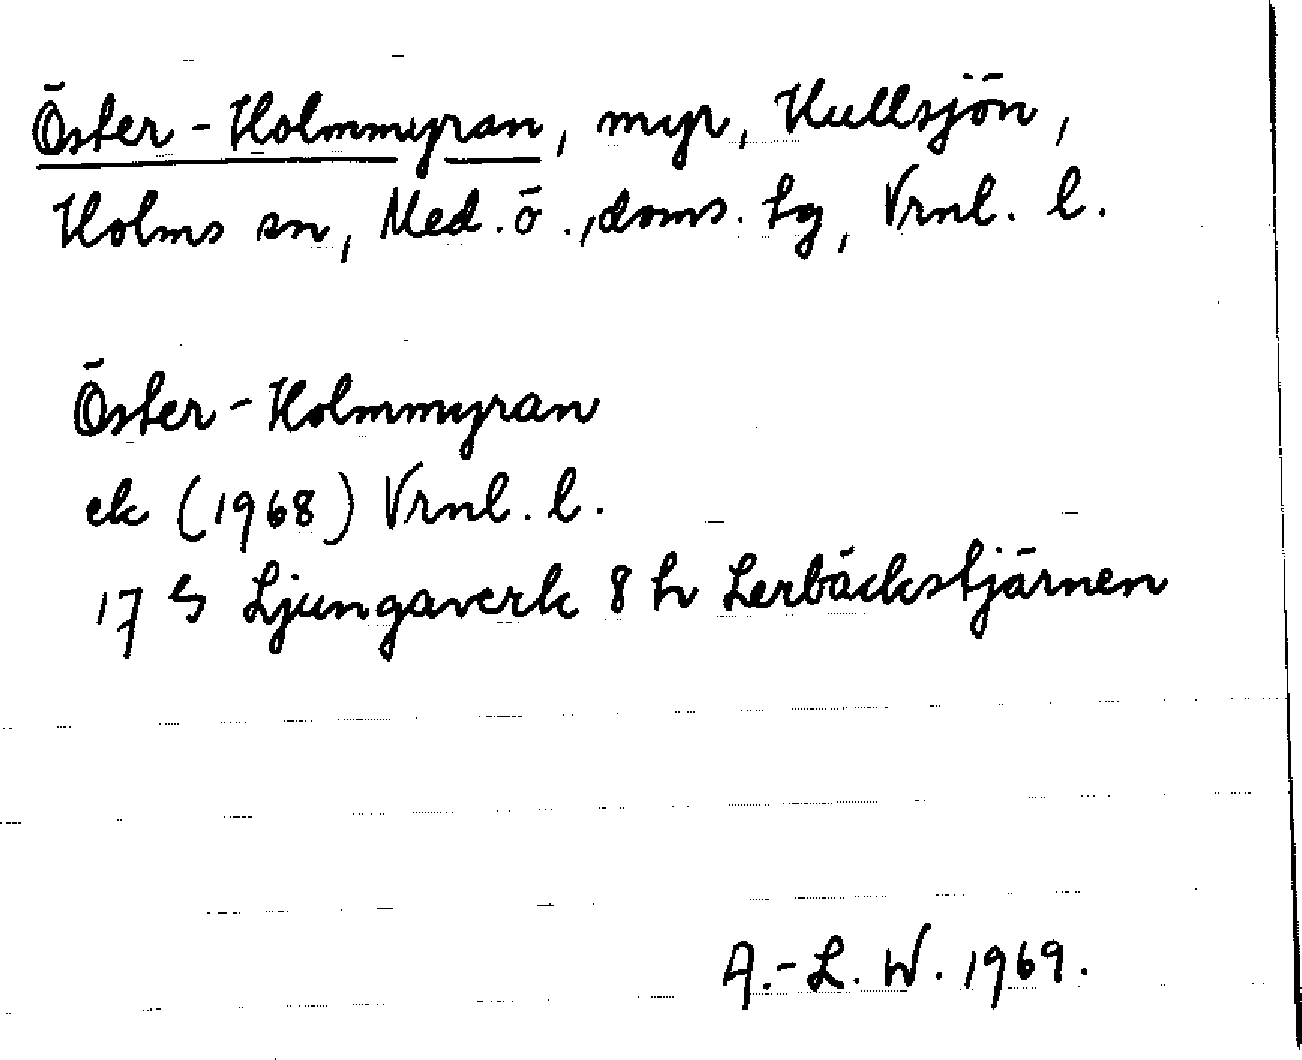 Öster-Holmmyran, myr, Hullsjön,
Holms sn, Med. ö., doms. hg, Vrnl. l.
Öster-Holmmyran
ek (1968) Vrnl. l.
17 G Ljungaverk 8 h Lerbäckstjärnen
A.-L. W. 1969.